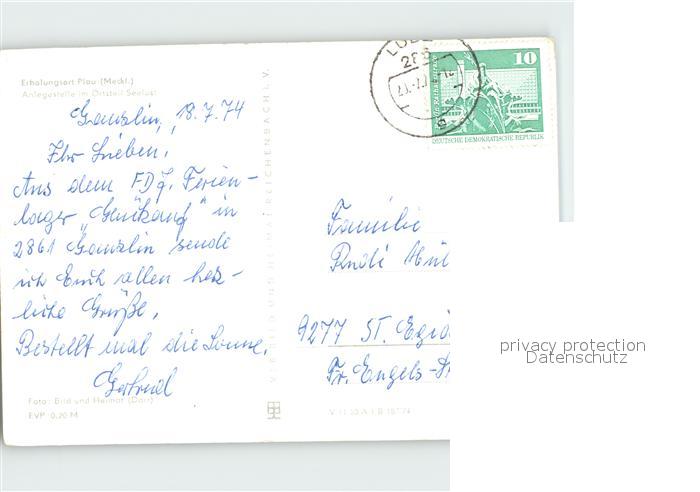 Erholungsort Plau (Meckl.)
Anlegestelle im Ortsteil Seelust
Ganzlin, 18.7.74
Ihr Lieben,
Aus dem FDJ. Ferien-
lager " " in
2861 Ganzlin sende
ich Euch allen herz-
liche Grüße.
Bestellt mal die Sonne.
Gertrud
Foto: Bild und Heimat (Darr)
EVP 0,20 M
VERLAG BILD UND HEIMAT REICHENBACH I. V.
10
DEUTSCHE DEMOKRATISCHE REPUBLIK
Familie
Rudi
9277 St. Egid
Fr. Engels-
privacy protection
Datenschutz